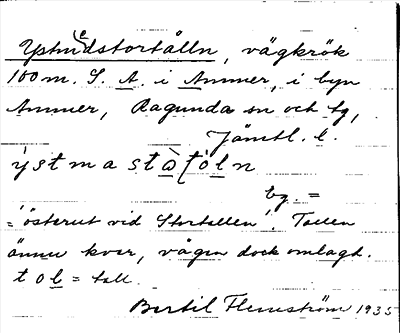 Ystm(e)dstortålln, vägkrök
100 m. S. A. i Ammer, i byn
Ammer, Ragunda sn och tg,
Jämtl. l.
y̍stmastὰ[t'o̲l̲n
bg. =
= 'österut vid Stortallen'. Tallen
ännu kvar, vägen dock omlagt.
t o l̲ = tall.
Bertil Flemström 1935